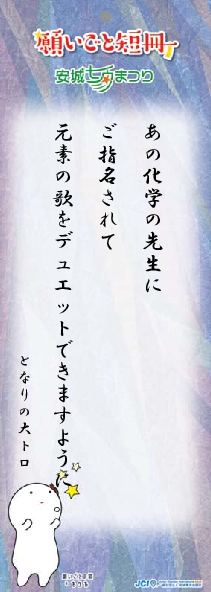 願いごと短冊
安城七夕まつり
あの化学の先生に
ご指名されて
元素の歌をデュエットできますよう
となりの大トロ
願いごと短冊
JCI